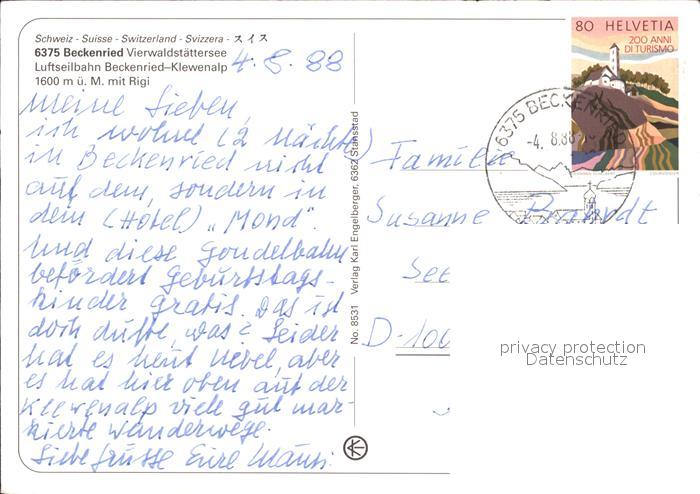 Schweiz - Suisse - Switzerland - Svizzera - スイス
6375 Beckenried Vierwaldstättersee
Luftseilbahn Beckenried–Klewenalp
1600 m ü. M. mit Rigi
4.8.88
Meine Lieben,
ich wohne (2 Nächte)
in Beckenried nicht
auf dem, sondern in
dem (Hotel) „Mond".
Und diese Gondelbahn
befördert Geburtstags-
kinder gratis. Das ist
doch dufte, was? Leider
hat es heut Nebel, aber
es hat hier oben auf der
Klewenalp viele gut mar-
kierte Wanderwege.
Liebe Grüsse Eure
No. 8531 Verlag Karl Engelberger, 6362 Stansstad
80 HELVETIA
200 ANNI
DI TURISMO
6375 BECKENRIED
-4. 8.88
Familie
Susanne Brandt
See
D-100
privacy protection
Datenschutz